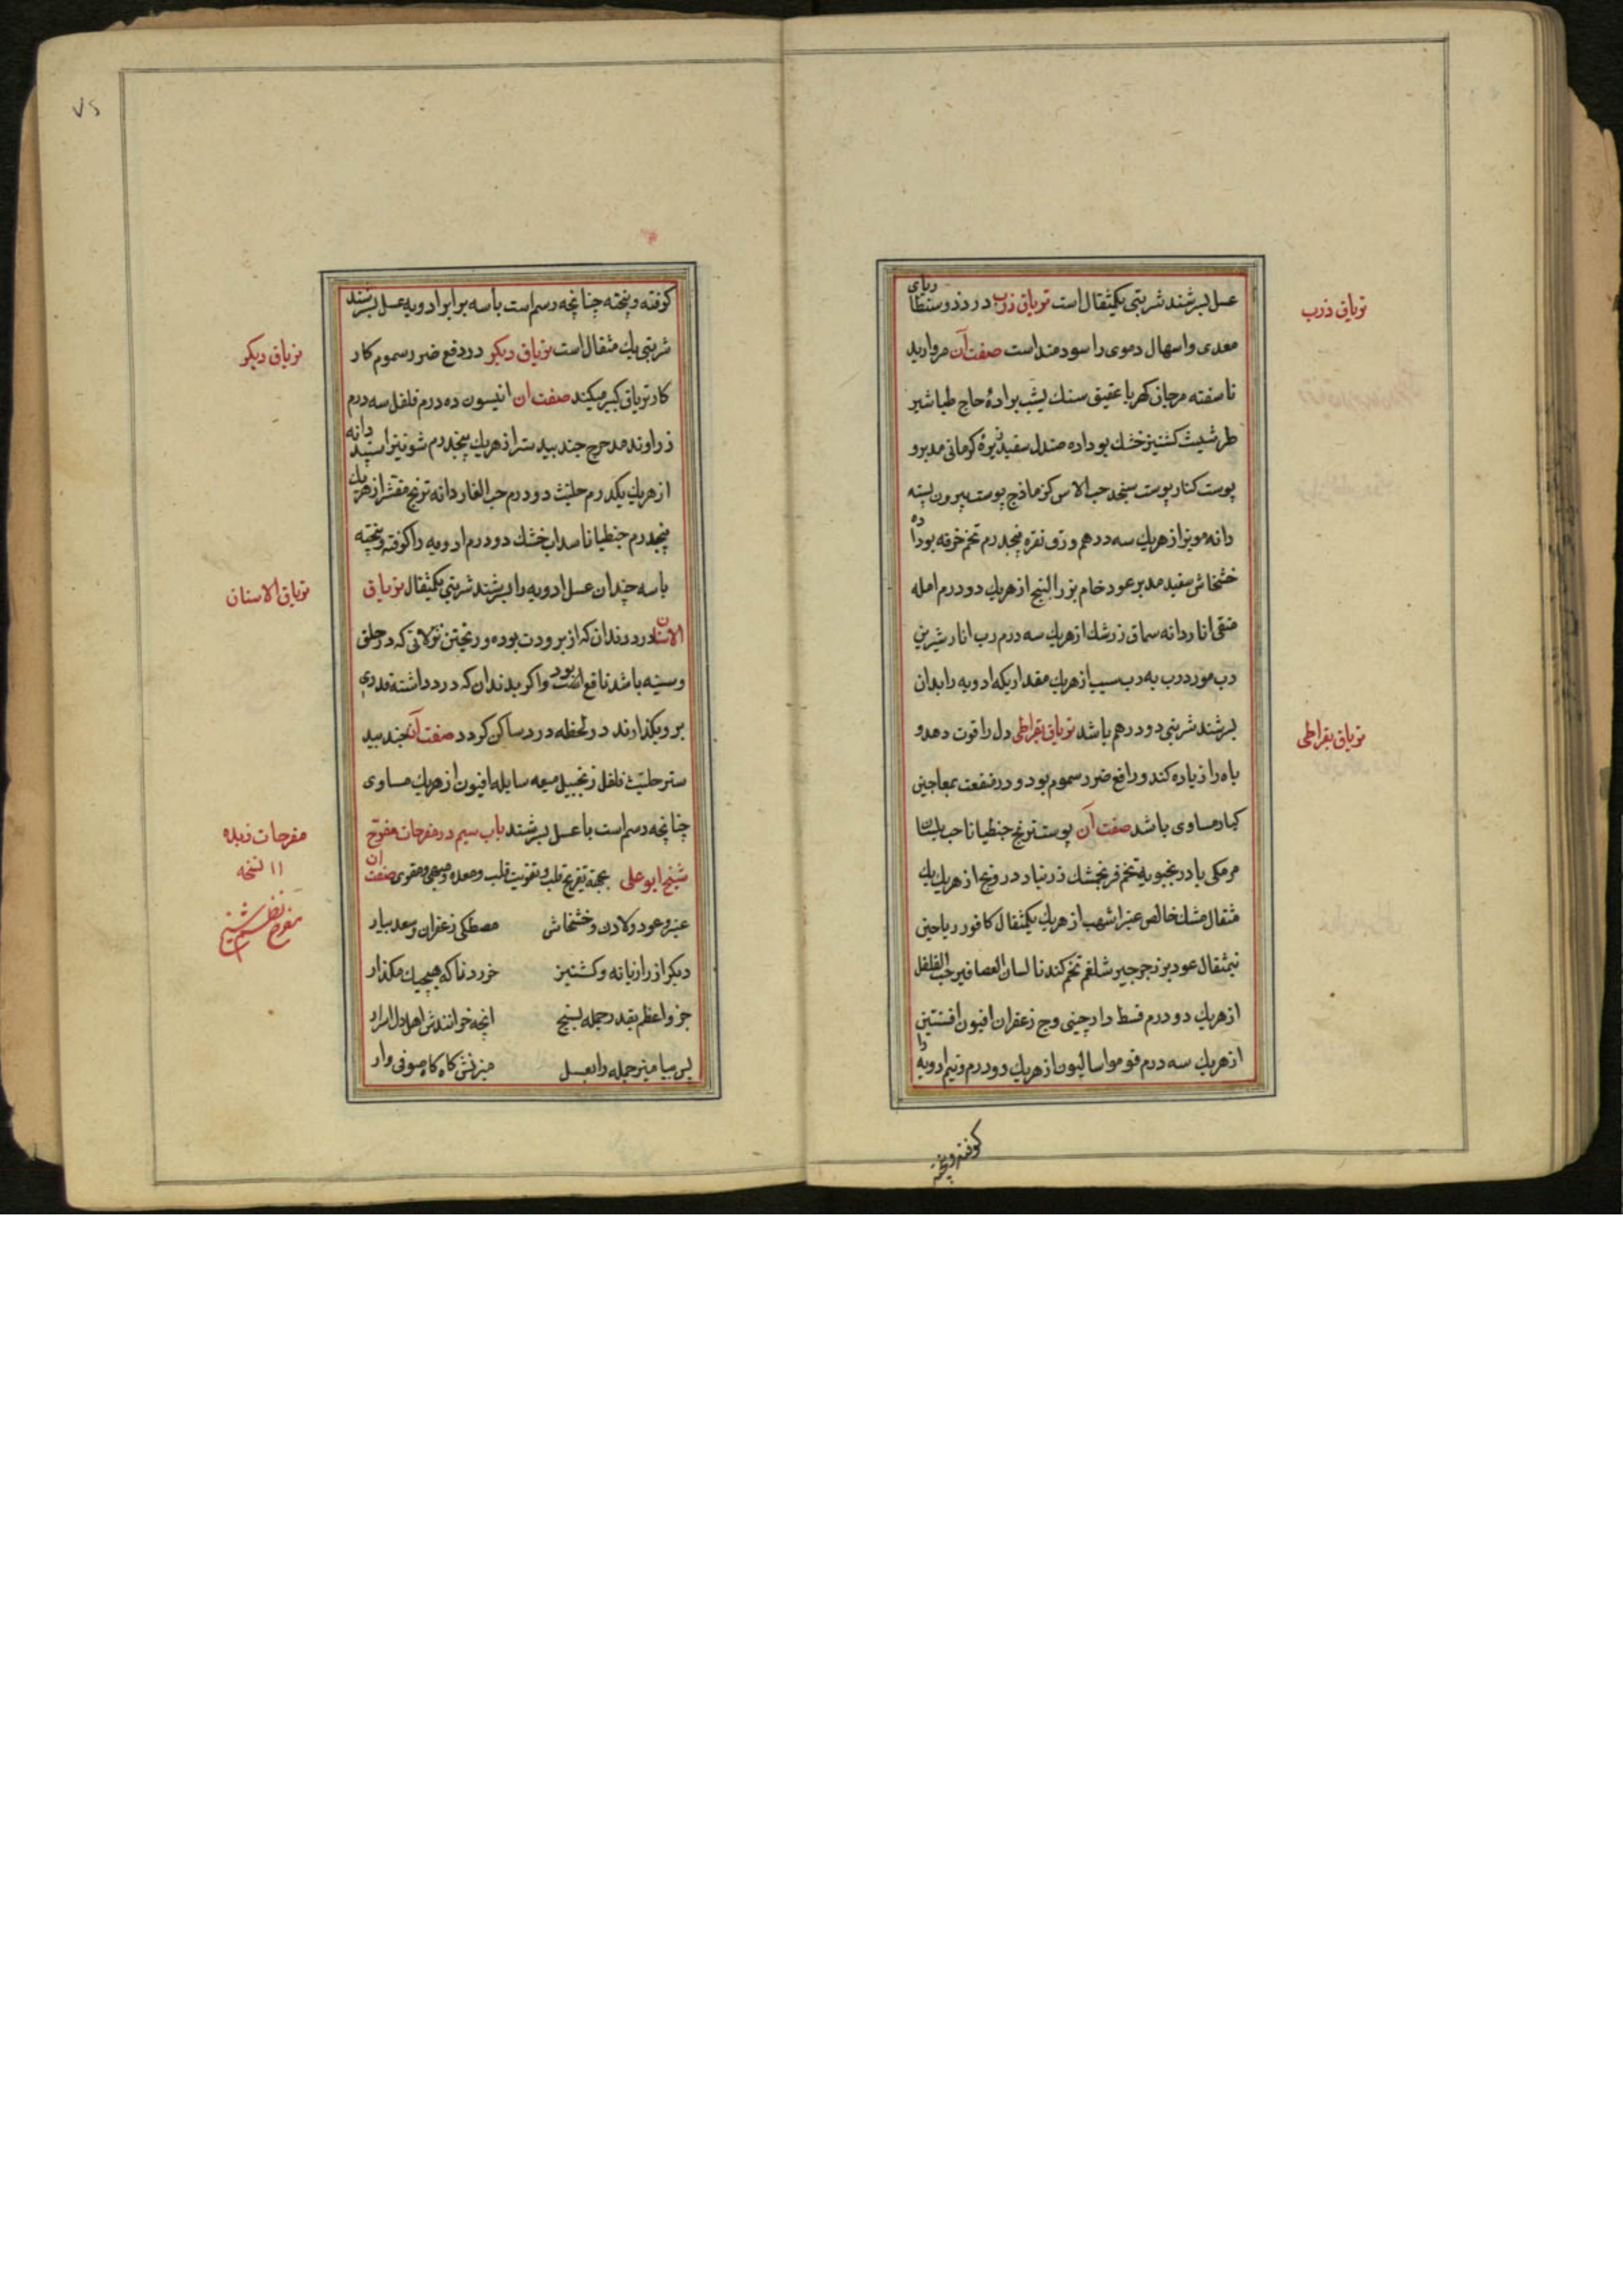 عسل بسرشند شربتی یکمثقال است تریاق ذرب در ذوسنطاریای
معدی و اسهال دموی را سودمند است صفت آن مروارید
ناسفته مرجان کهربا عقیق سنك یشب براده عاج طباشیر
طرثیث کشنیز خشك بو داده صندل سفید زیرهٔ کرمانی مدبر و
پوست کنار پوست سنجد حب الاس کزمازج پوست بیرون پسته
دانه مویز از هریك سه درهم ورق نقره پنجدرم تخم خرفه بو داده
خشخاش سفید مدبر عود خام بزر البنج از هریك دو درم امله
منقی انار دانه سماق زرشك از هریك سه درم رب انار شیرین
رب مورد رب به رب سیب از هریك مقداریکه ادویه را بدان
بسرشند شربتی دو درهم باشد تریاق بقراطی دل را قوت دهد و
باه را زیاده کند و رافع ضرر سموم بود و در منفعت بمعاجین
کبار مساوی باشد صفت آن پوست ترنج جنطیانا حب بلسان
مر مکی بادرنجبویه تخم فرنجمشك زرنباد درونج از هریك یك
مثقال مشك خالص عنبر اشهب از هریك یکمثقال کافور ریاحین
نیمثقال عود بزر جرجیر شلغم تخم کندنا لسان العصافیر حب الفلفل
از هریك دو درم قسط دارچینی وج زعفران افیون افسنتین
از هریك سه درم فو مو اسالیون از هریك دو درم و نیم ادویه را
کوفته و بیخته
تریاق ذرب
تریاق بقراطی
کوفته و بیخته چنانچه رسم است با سه برابر ادویه عسل بسرشند
شربتی یك مثقال است تریاق دیکر در دفع ضرر سموم کار
کار تریاق کبیر میکند صفت ان انیسون ده درم فلفل سه درم
زراوند مدحرج جند بیدستر از هریك پنجدرم شونیز اسپید دانه
از هریك یکدرم حلتیت دو درم حب الغار دانه ترنج مقشر از هریك
پنجدرم جنطیانا سداب خشك دو درم ادویه را کوفته و بیخته
با سه چندان عسل ادویه را بسرشند شربتی یکمثقال تریاق
الاسنان درد دندان که از برودت بوده و ریختن نزلاتی که در حلق
و سینه باشد نافع است بود و اکر بدندان که درد داشته قدری
برو بکذارند در لحظه درد ساکن کردد صفت آن جند بید
ستر حلتیت فلفل زنجبیل میعه سایله افیون از هریك مساوی
چنانچه رسم است با عسل بسرشند باب سیم در مفرحات مفرح
شیخ ابو علی بجهة تفریح قلب و تقویت قلب و معده و مبهی و مقوی صفت ان
عنبر و عود و لادن و خشخاش مصطکی زعفران و سعد بیار
دیکر از رازیانه و کشنیز خرد ناکه هیچیك مکذار
جزو اعظم بقدر جمله بسنج انچه خوانندش اهل دل اسرار
پس بیامیز جمله را بعسل میزنش کاه کاه صوفی وار
تریاق دیکر
تریاق الاسنان
مفرحات زبده
١١ نسخه